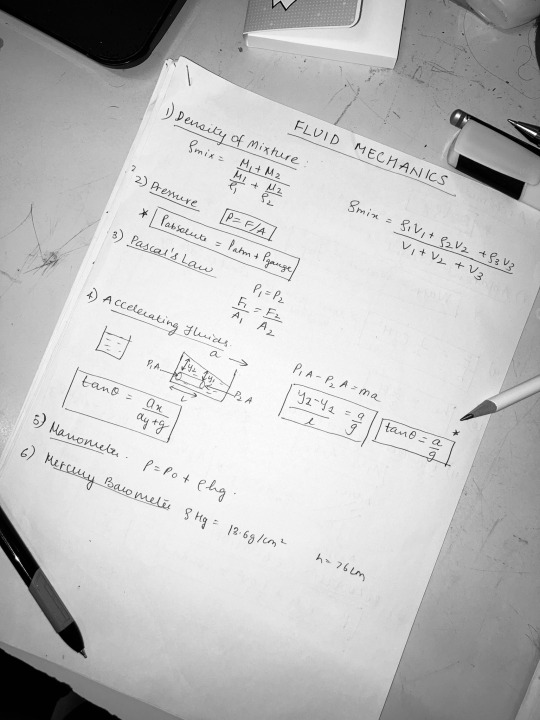 FLUID MECHANICS
1) Density of Mixture:
ρmix = (M1 + M2) / (M1/ρ1 + M2/ρ2)
ρmix = (ρ1V1 + ρ2V2 + ρ3V3) / (V1 + V2 + V3)
2) Pressure
P = F/A
* Pabsolute = Patm + Pgauge
3) Pascal's Law
P1 = P2
F1/A1 = F2/A2
4) Accelerating fluids.
a →
P1A y2 y1 P2A
L
P1A - P2A = ma
(y2 - y2)/L = a/g
tanθ = a/g *
tanθ = ax/(ay+g)
5) Manometer.
P = P0 + ρhg.
6) Mercury Barometer
ρHg = 13.6g/cm²
h = 76cm